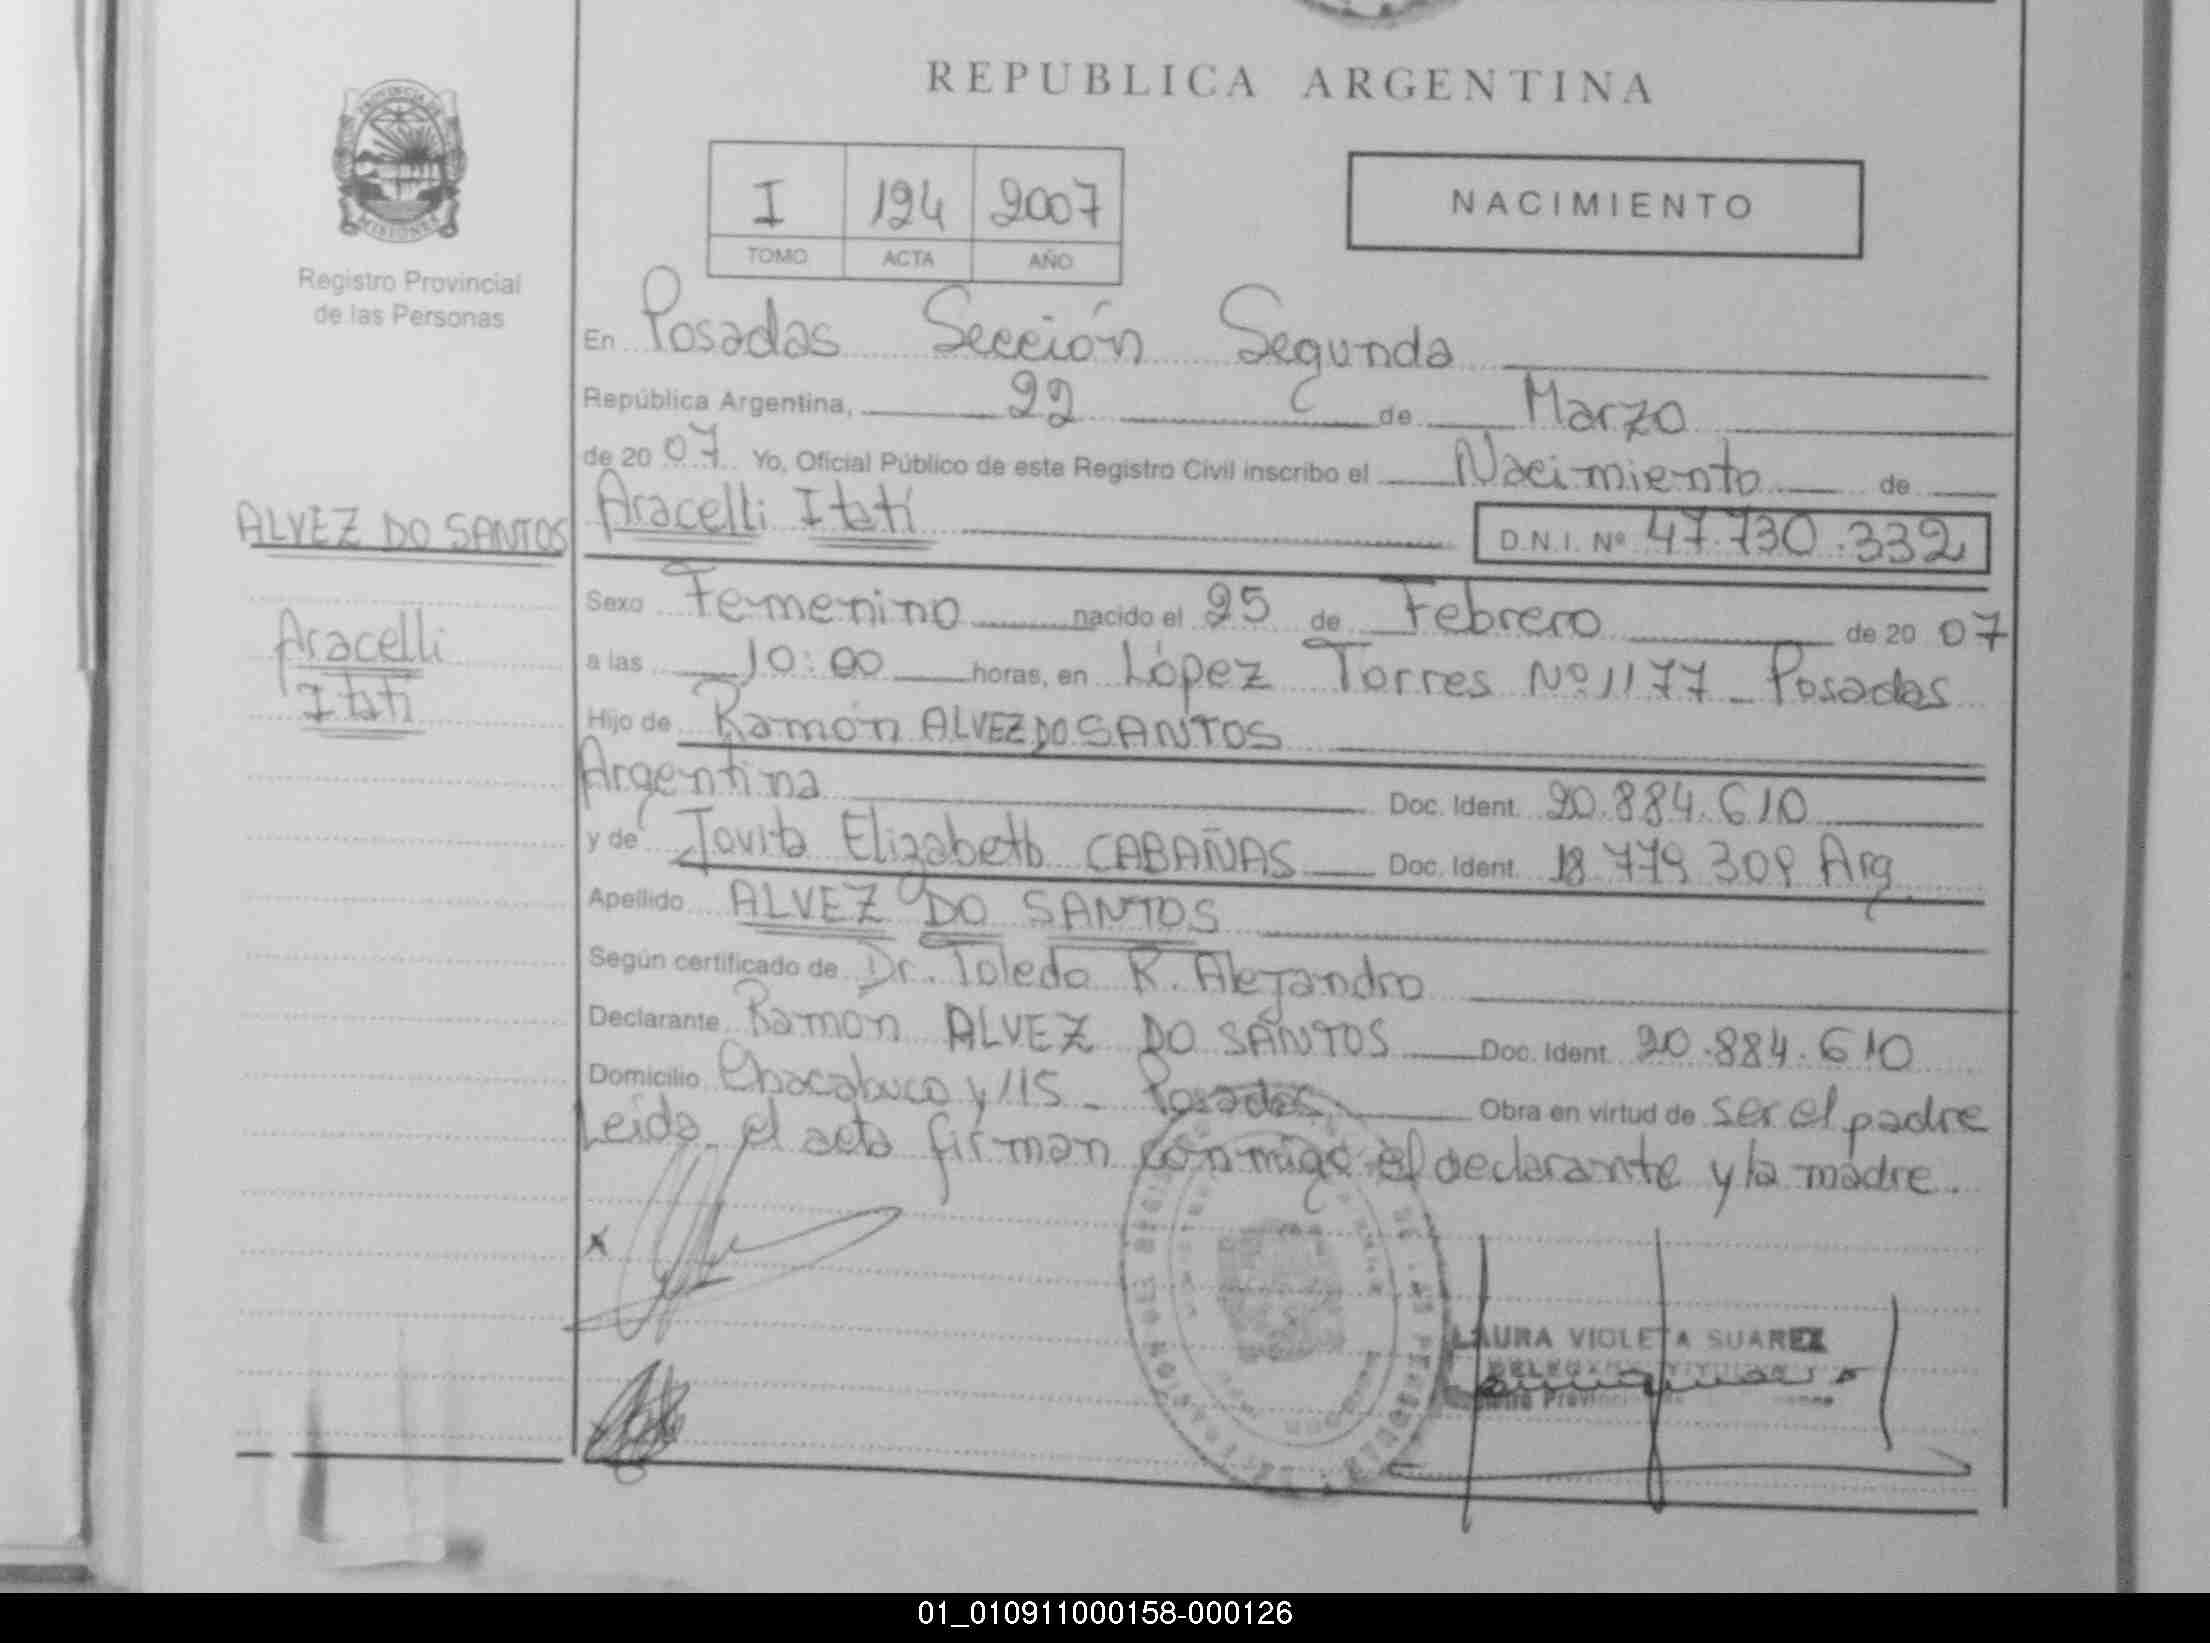 REPUBLICA ARGENTINA
PROVINCIA DE MISIONES
Registro Provincial
de las Personas
I 124 2007
TOMO ACTA AÑO
NACIMIENTO
En Posadas Sección Segunda
República Argentina, 22 de Marzo
de 2007 Yo, Oficial Público de este Registro Civil inscribo el Nacimiento de
Aracelli Itatí D.N.I. Nº 47.730.332
ALVEZ DO SANTOS
Aracelli
Itatí
Sexo Femenino nacido el 25 de Febrero de 2007
a las 10:00 horas, en López Torres Nº 1177 - Posadas
Hijo de Ramón ALVEZ DO SANTOS
Argentina Doc. Ident. 20.884.610
y de Jovita Elizabeth CABAÑAS Doc. Ident. 18.779.309 Arg
Apellido ALVEZ DO SANTOS
Según certificado de Dr. Toledo R. Alejandro
Declarante Ramón ALVEZ DO SANTOS Doc. Ident. 20.884.610
Domicilio Chacabuco y 115 - Posadas Obra en virtud de ser el padre
Leida el acta firman conmigo el declarante y la madre.
x
LAURA VIOLETA SUAREZ
01_010911000158-000126